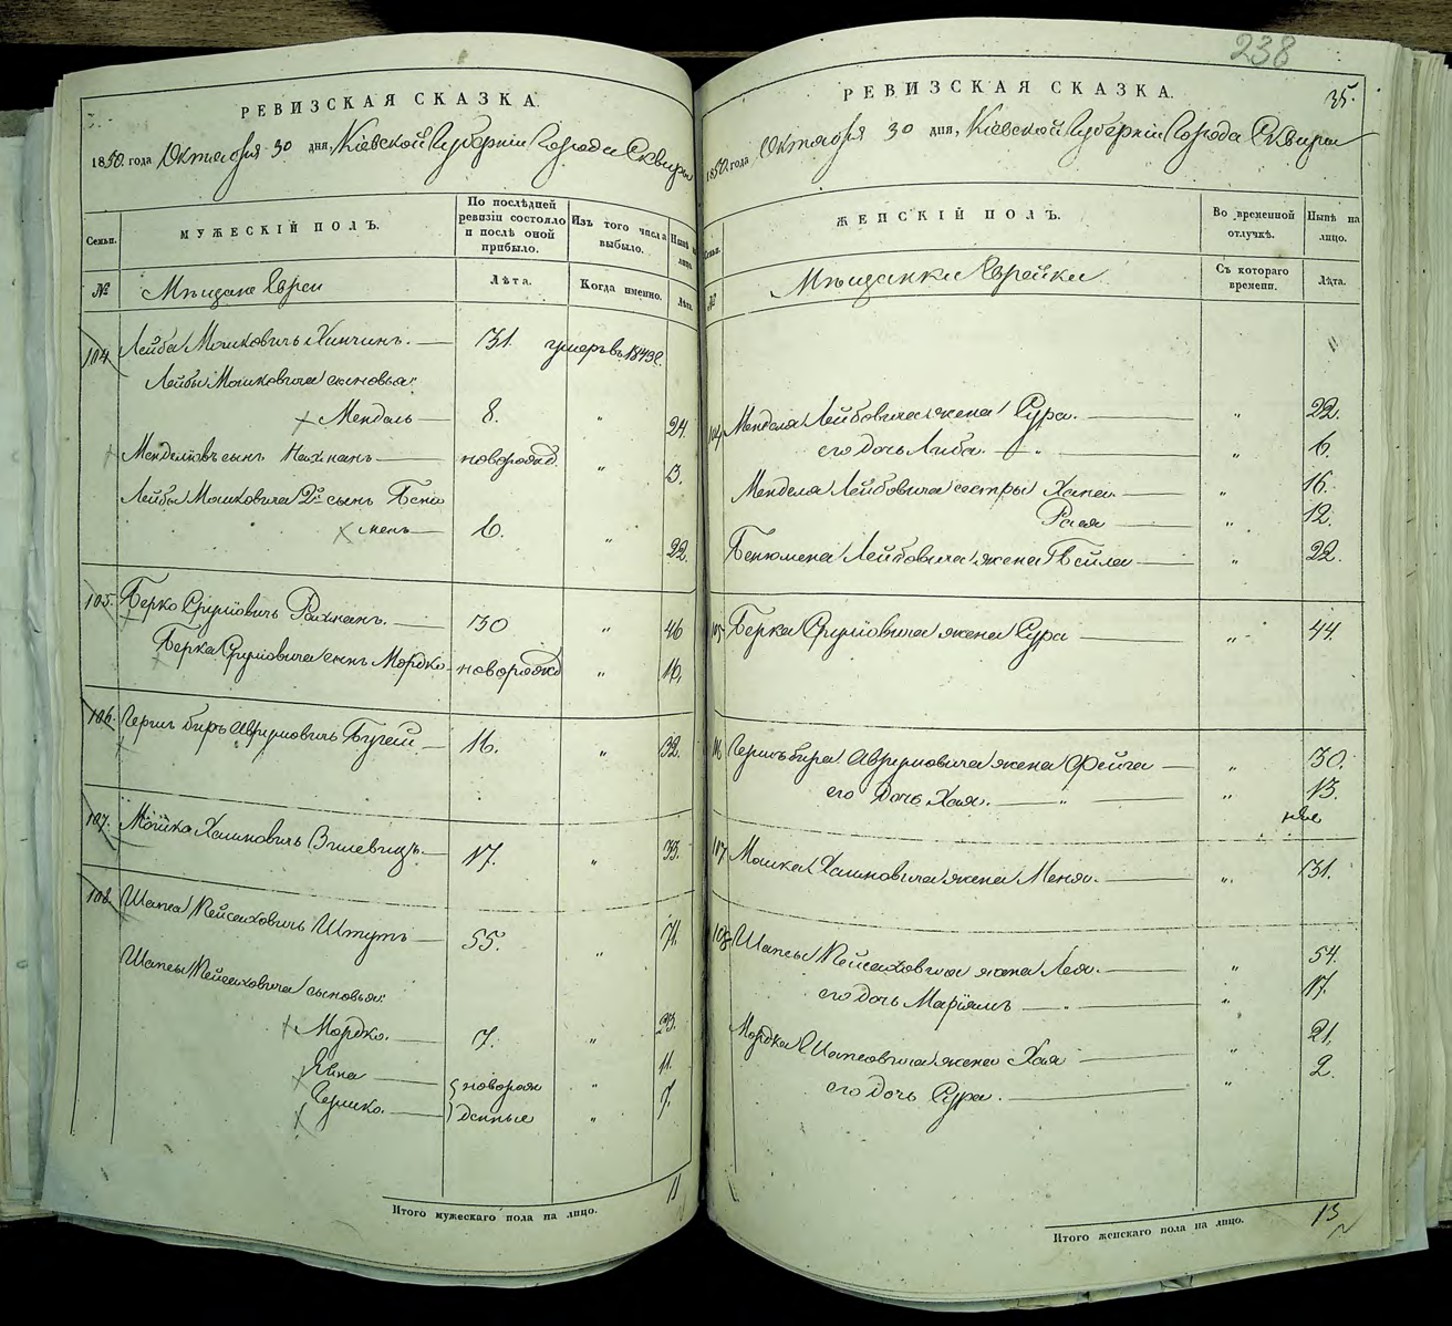 238
РЕВИЗСКАЯ СКАЗКА.
1850. года Октября 30 дня, Кіевской Губерніи Города Сквиры
Семьи.
МУЖЕСКІЙ ПОЛЪ.
По послѣдней ревизіи состояло и послѣ оной прибыло.
Изъ того числа выбыло.
Нынѣ на лицо.
№
Мѣщане Евреи
Лѣта.
Когда именно.
Лѣта.
104. Лейба Мошковичъ 31. умеръ въ 1843 г.
Лейбы Мошковича сыновья:
Мендель 8. " 24.
Менделювъ сынъ Нахманъ новорожд. " 3.
Лейбы Мошковича 2й сынъ Беню
менъ 6. " 22.
105. Берко Сруліовичъ Рахманъ. 30 " 46
Берка Сруліовича сынъ Мордко новорожд " 16,
106. Герш Беръ Аврумовичъ 16. " 32.
107. Мошко Хаимовичъ 17. " 33.
108. Шапса Пейсаховичъ Штутъ 55. " 71.
Шапсы Пейсаховича сыновья:
Мордко. 7. " 23.
Явна { новорож " 11.
Гершко. } денные " 7.
Итого мужескаго пола на лицо. 11
РЕВИЗСКАЯ СКАЗКА. 35.
1850. года Октября 30 дня, Кіевской Губерніи Города Сквиры
Семьи.
ЖЕНСКІЙ ПОЛЪ.
Во временной отлучкѣ.
Нынѣ на лицо.
№
Мѣщанки Еврейки
Съ котораго времени.
Лѣта.
104 Менделя Лейбовича жена Сура. " 22.
его дочь Либа. " 6.
Менделя Лейбовича сестры Хана. " 16.
Рася " 12.
Бенюмена Лейбовича жена Бейла " 22.
105 Берка Сруліовича жена Сура " 44.
106 Гершъ Бера Аврумовича жена Фейга " 30.
его дочь Хая. " 13.
107 Мошка Хаимовича жена Меня. " 31.
108 Шапсы Пейсаховича жена Лея. " 54.
его дочь Маріямъ " 17.
Мордка Шапсовича жена Хая " 21,
его дочь Сура. " 2.
Итого женскаго пола на лицо. 13